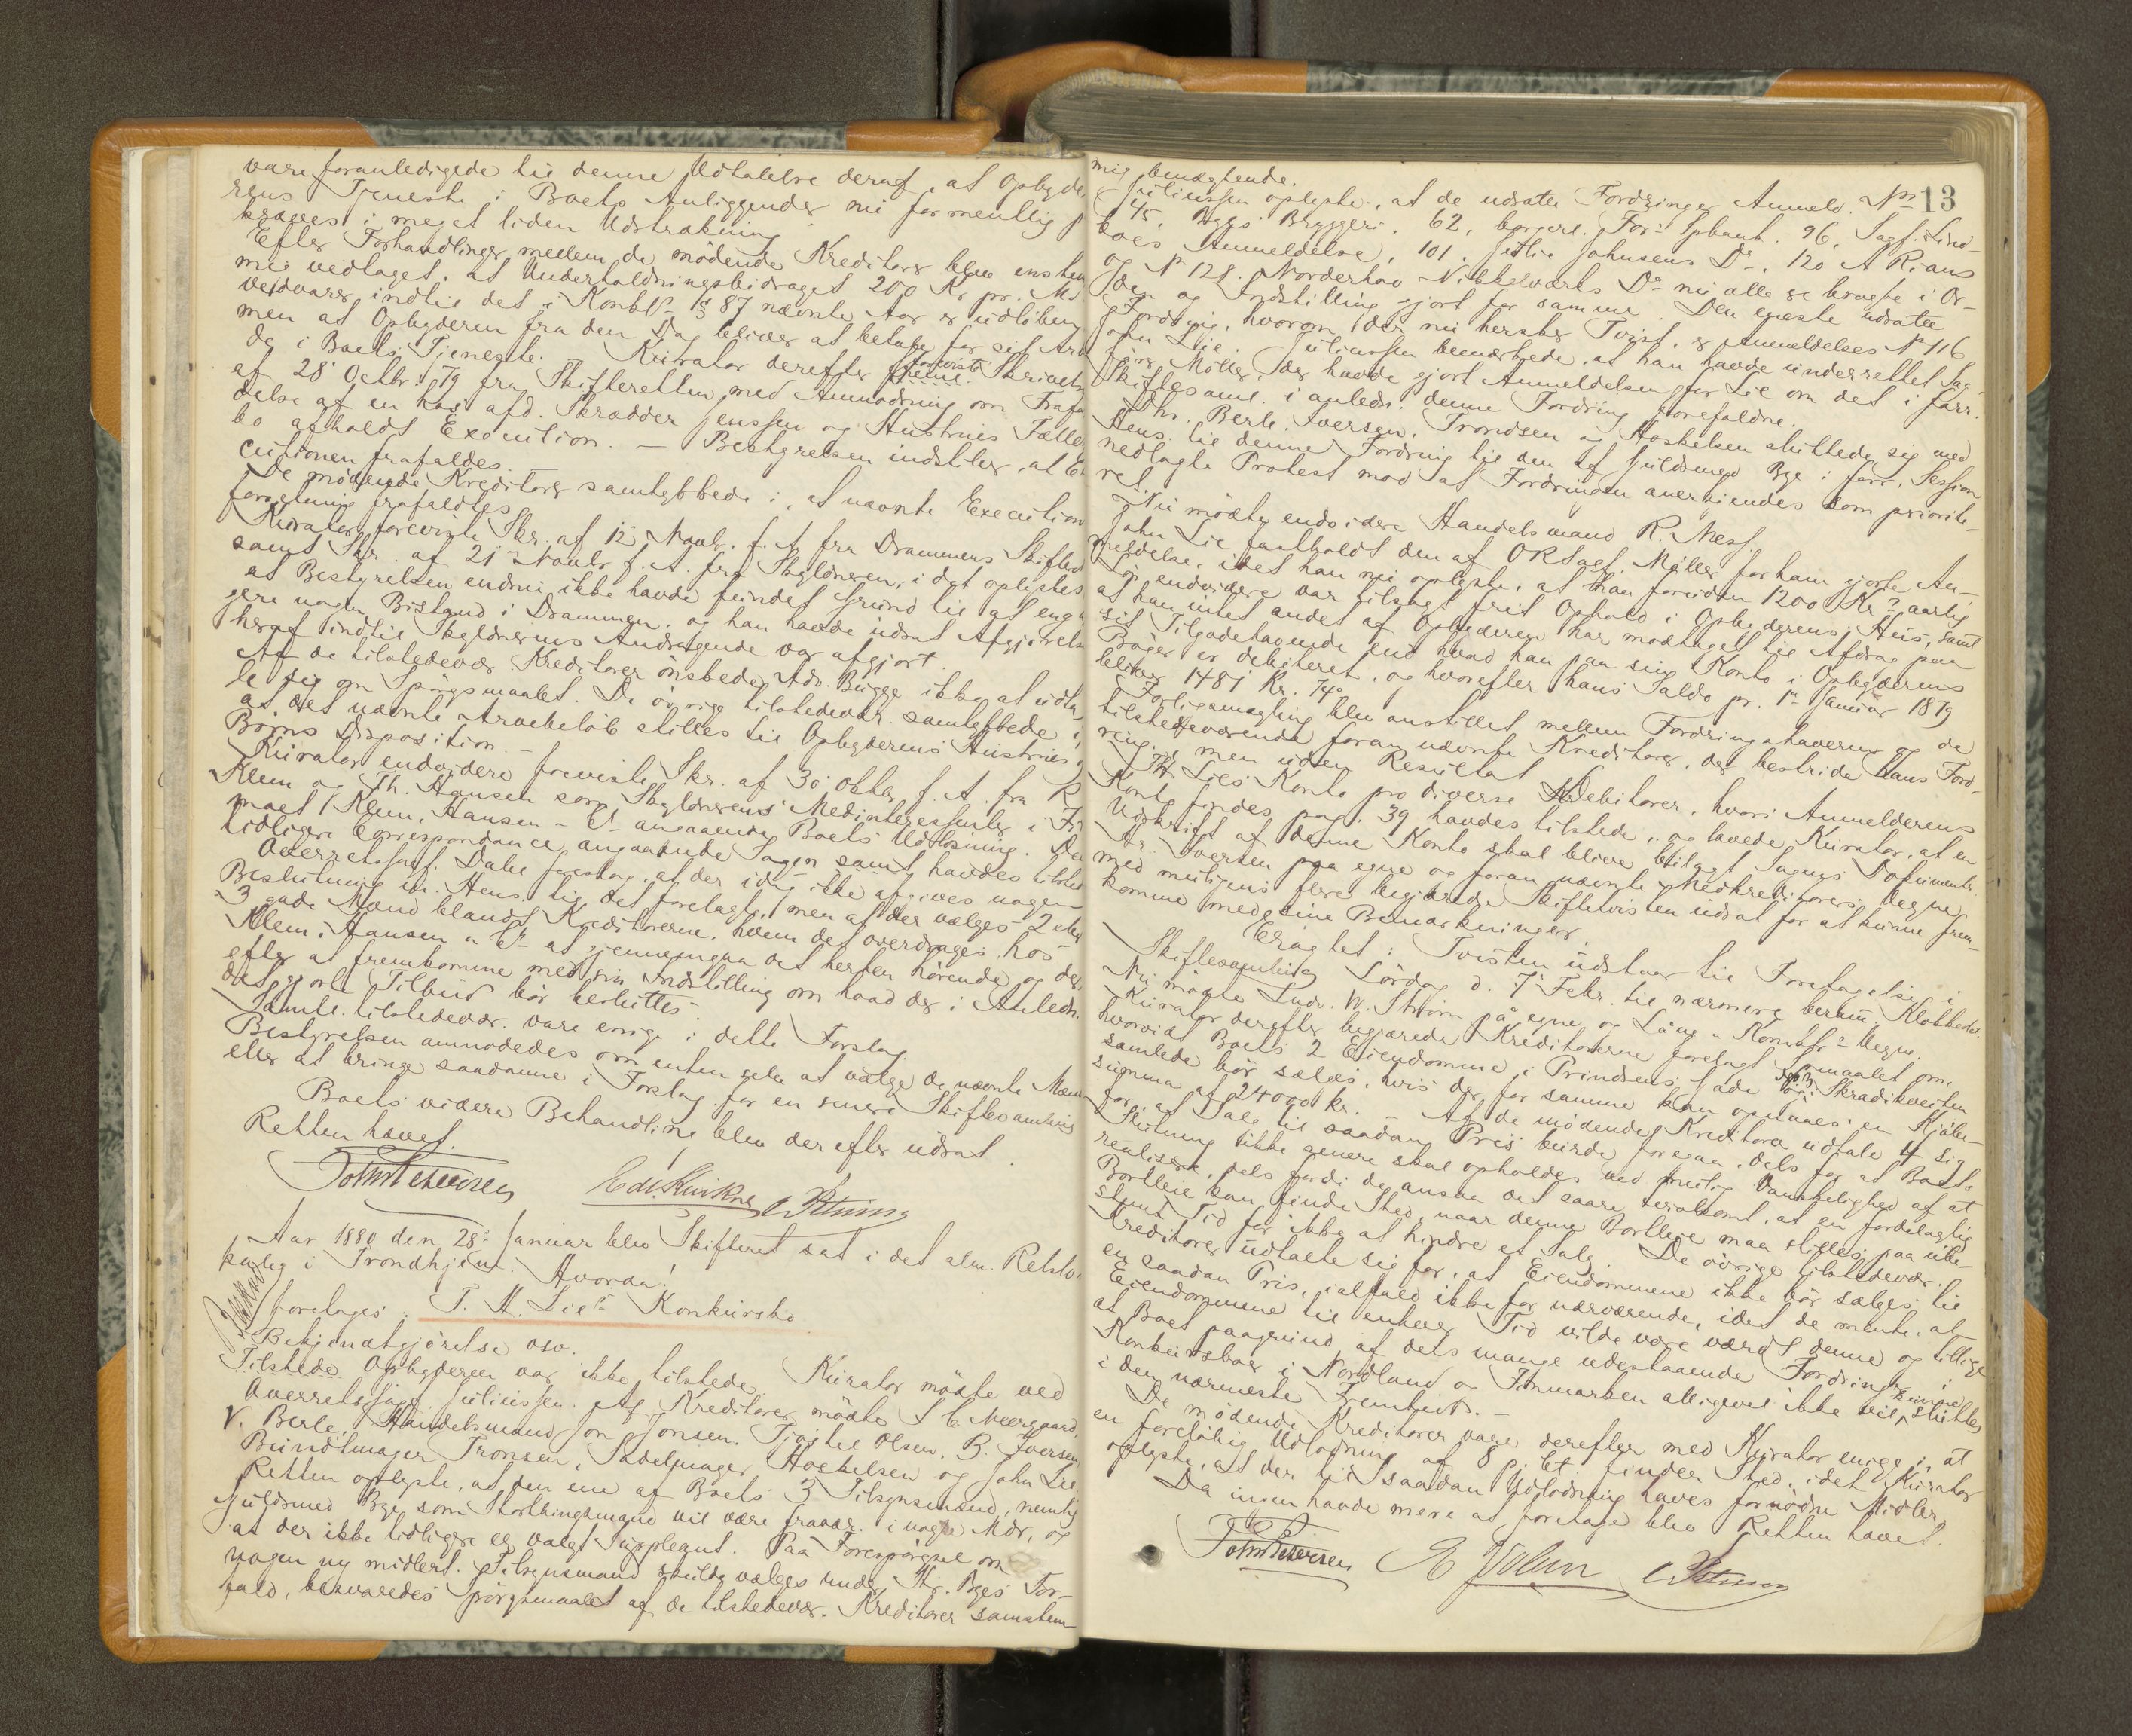 vare foranledigede til denne Udtalelse deraf, at Opbyde-
rens Tjeneste i Boets Anliggender nu formentlig
kræves i meget liden Udstrækning.
Efter Forhandlinger mellem de mødende Kreditorer blev enstem
mig vedtaget, at Underholdningsbidraget 200 Kr pr. Md
vedvarer indtil det i Konkl. § 87 nævnte Aar er udløben
men at Opbyderen fra den Dag bliver at betale for sit Ar
de i Boets Tjeneste. Kurator derefter foreviste Skrivels
af 28 Octbr. 79 fra Skifteretten med Anmodning om Frafa
delse af en hos afd. Skrædder Jenssen og Hustrues Fælles
bo afholdt Execution. - Bestyrelsen indstiller, at Ex
cutionen frafaldes.
De mødende Kreditorer samtykkede i, at nævnte Execution
forretning frafaldtes.
Kurator foreviste Skr. af 12 Novbr. f. A. fra Drammens Skifteret
samt Skr. af 21 Novbr f. A. fra Skyldneren, i det oplystes
at Bestyrelsen endnu ikke havde fundet Grund til at enga
gere nogen Bistand i Drammen, og han havde udsat Afgjørels
heraf indtil Skyldnerens Andragende var afgjort.
Af de tilstedevær. Kreditorer ønskede Adv. Bugge ikke at udta-
le sig om Spørgsmaalet. De øvrige tilstedevær. samtykkede i,
at det nævnte Arvebeløb stilles til Opbyderens Hustrues
Børns Disposition. -
Kurator endvidere foreviste Skr. af 30 Oktbr. f. A. fra R
Klem og Th. Hansen som Skyldnerens Medinteressenter i Fir
maet Klem, Hansen & Co angaaende Boets Udløsning. Den
tidligere Correspondance angaaende Sagen samt havdes tilsted
Overretssagf. Dahl foreslog, at der idag ikke afgives nogen
Beslutning m. Hens. til det forelagte, men at der vælges 2 eller
3 gode Mænd blandt Kreditorerne, hvem det overdrages hos
Klem, Hansen & Co at gjennemgaa det herhen hørende og der-
efter at fremkomme med sin Indstilling om hvad der i Anledn.
det gjorte Tilbud bør besluttes.
Samtl. tilstedevær. vare enige i dette Forslag.
Bestyrelsen anmodedes om enten selv at vælge de nævnte Mæn
eller at bringe saadanne i Forslag for en senere Skiftesamling
Boets videre Behandling blev derefter udsat.
Retten hævet.
Aar 1880 den 28 Januar blev Skifteret sat i det alm. Retslo-
kale i Trondhjem. Hvorda!
foretages: T. M. Lies Konkursbo
Bekjendtgjørelse osv.
Tilstede Opbyderen var ikke tilstede. Kurator mødte ved
Overretssagf. Juliussen. Af Kreditorer mødte L C Neergaard,
V. Berle, Handelsmand Jon Jonsen, Tjøstel Olsen, B. Iversen
Bundtmager Tronsen, Sadelmager Hoskelsen og John Lie.
Retten oplyste, at den ene af Boets 3 Tilsynsmænd, nemlig
Guldsmed Bye, som Storthingsmand vil være fravær. i nogle Mdr, og
at der ikke tidligere er valgt Suppleant. Paa Forespørgsel om
nogen ny midlert. Tilsynsmand skulde vælges under Hr. Byes For-
fald, besvaredes Spørgsmaalet af de tilstedevær. Kreditorer samstem-
13
mig benægtende.
Juliussen oplyste, at de udsatte Fordringer Anmeld. No
45, Bryggeri, 62, borgerl. For. Spbank. 96, Sagf. Lind-
boes Anmeldelse, 101. Julie Johnsens Do, 120 A Rians
og No 128. Norderhov Nikkelværks Do nu alle er bragte i Or-
den og Indstilling gjort for samme. Den eneste udsatte
Fordring, hvorom der nu hersker Tvist, er Anmeldelses No 116
John Lie. Juliussen bemærkede, at han havde underrettet Sag-
fører Møller, der havde gjort Anmeldelsen for Lie om det i forr.
Skiftesaml. i anledn. denne Fordring forefaldne.
Hr. Berle, Iversen, Trondsen og Hoskelsen sluttede sig med
Hens. til denne Fordring til den af Guldsmed Bye i forr. Session
nedlagte Protest mod at Fordringen anerkjendes som priorite-
ret.
Nu mødte endvidere Handelsmand R. Ness.
John Lie fastholdt den af ORSagf. Møller for ham gjorte An-
meldelse, idet han nu oplyste, at han foruden 1200 Kr aarlig
Løn endvidere var tilsagt frit Ophold i Opbyderens Hus, samt
at han intet andet af Opbyderen har modtaget til Afdrag paa
sit Tilgodehavende end hvad han paa sin Konto i Opbyderens
Bøger er debiteret, og hvorefter hans Saldo pr. 1 Januar 1879
bliver 1481 Kr. 74ø
Forligsmægling blev anstillet mellem Fordringshaveren og de
tilstedeværende foran nævnte Kreditorer, der bestride hans Ford-
ring, men uden Resultat.
T. M. Lies Konto pro diverse Debitorer, hvori Anmelderens
Konto findes pag. 39 havdes tilstede, og lovede Kurator, at en
Udskrift af denne Konto skal blive bilagt Sagens Dokumenter.
Hr. Iversen paa egne og foran nævnte Medkreditorers Vegne
med muligens flere begjærede Skiftetvisten udsat for at kunne frem-
komme med sine Bemærkninger.
Eragtet: Tvisten udstaar til Foretagelse i
Skiftesamling Lørdag d. 7 Febr. til nærmere beram. Klokkeslet.
Nu mødte Ludv. W. Strøm på egne og Lång & Komp. Vegne.
Kurator derefter begjærede Kreditorerne forelagt Spmaalet om,
hvorvidt Boets 2 Eiendomme i Prindsens Gade og i Skradikveiten
samlede bør sælges, hvis der for samme kan opnaaes en Kjøbe-
summa af 24000 kr. - Af de mødende Kreditorer udtale 4 sig
for, at Salg til saadan Pris burde foregaa, dels for at Boets
Slutning ikke senere skal opholdes ved mulig Vanskelighed af at
realisere, dels fordi de ansaa det saare tvivlsomt, at en fordelagtig
Bortleie kan finde Sted, naar denne Bortleie maa stilles paa ube-
stemt Tid for ikke at hindre et Salg. De øvrige tilstedevær.
Kreditorer udtalte sig for, at Eiendommene ikke bør sælges til
en saadan Pris, ialfald ikke for nærværende, idet de mente, at
Eiendommene til enhver Tid vilde være værdt denne og tillige
at Boet paagrund af dets mange udestaaende Fordringer i
Konkursboer i Nordland og Finmarken alligevel ikke vil kunne sluttes
i den nærmeste Fremtid. -
De mødende Kreditorer vare derefter med Kurator enige i, at
en foreløbig Udlodning af 8 pCt finder Sted, idet Kurator
oplyste, at der til saadan Udlodning haves fornødne Midler.
Da ingen havde mere at foretage blev Retten hævet.